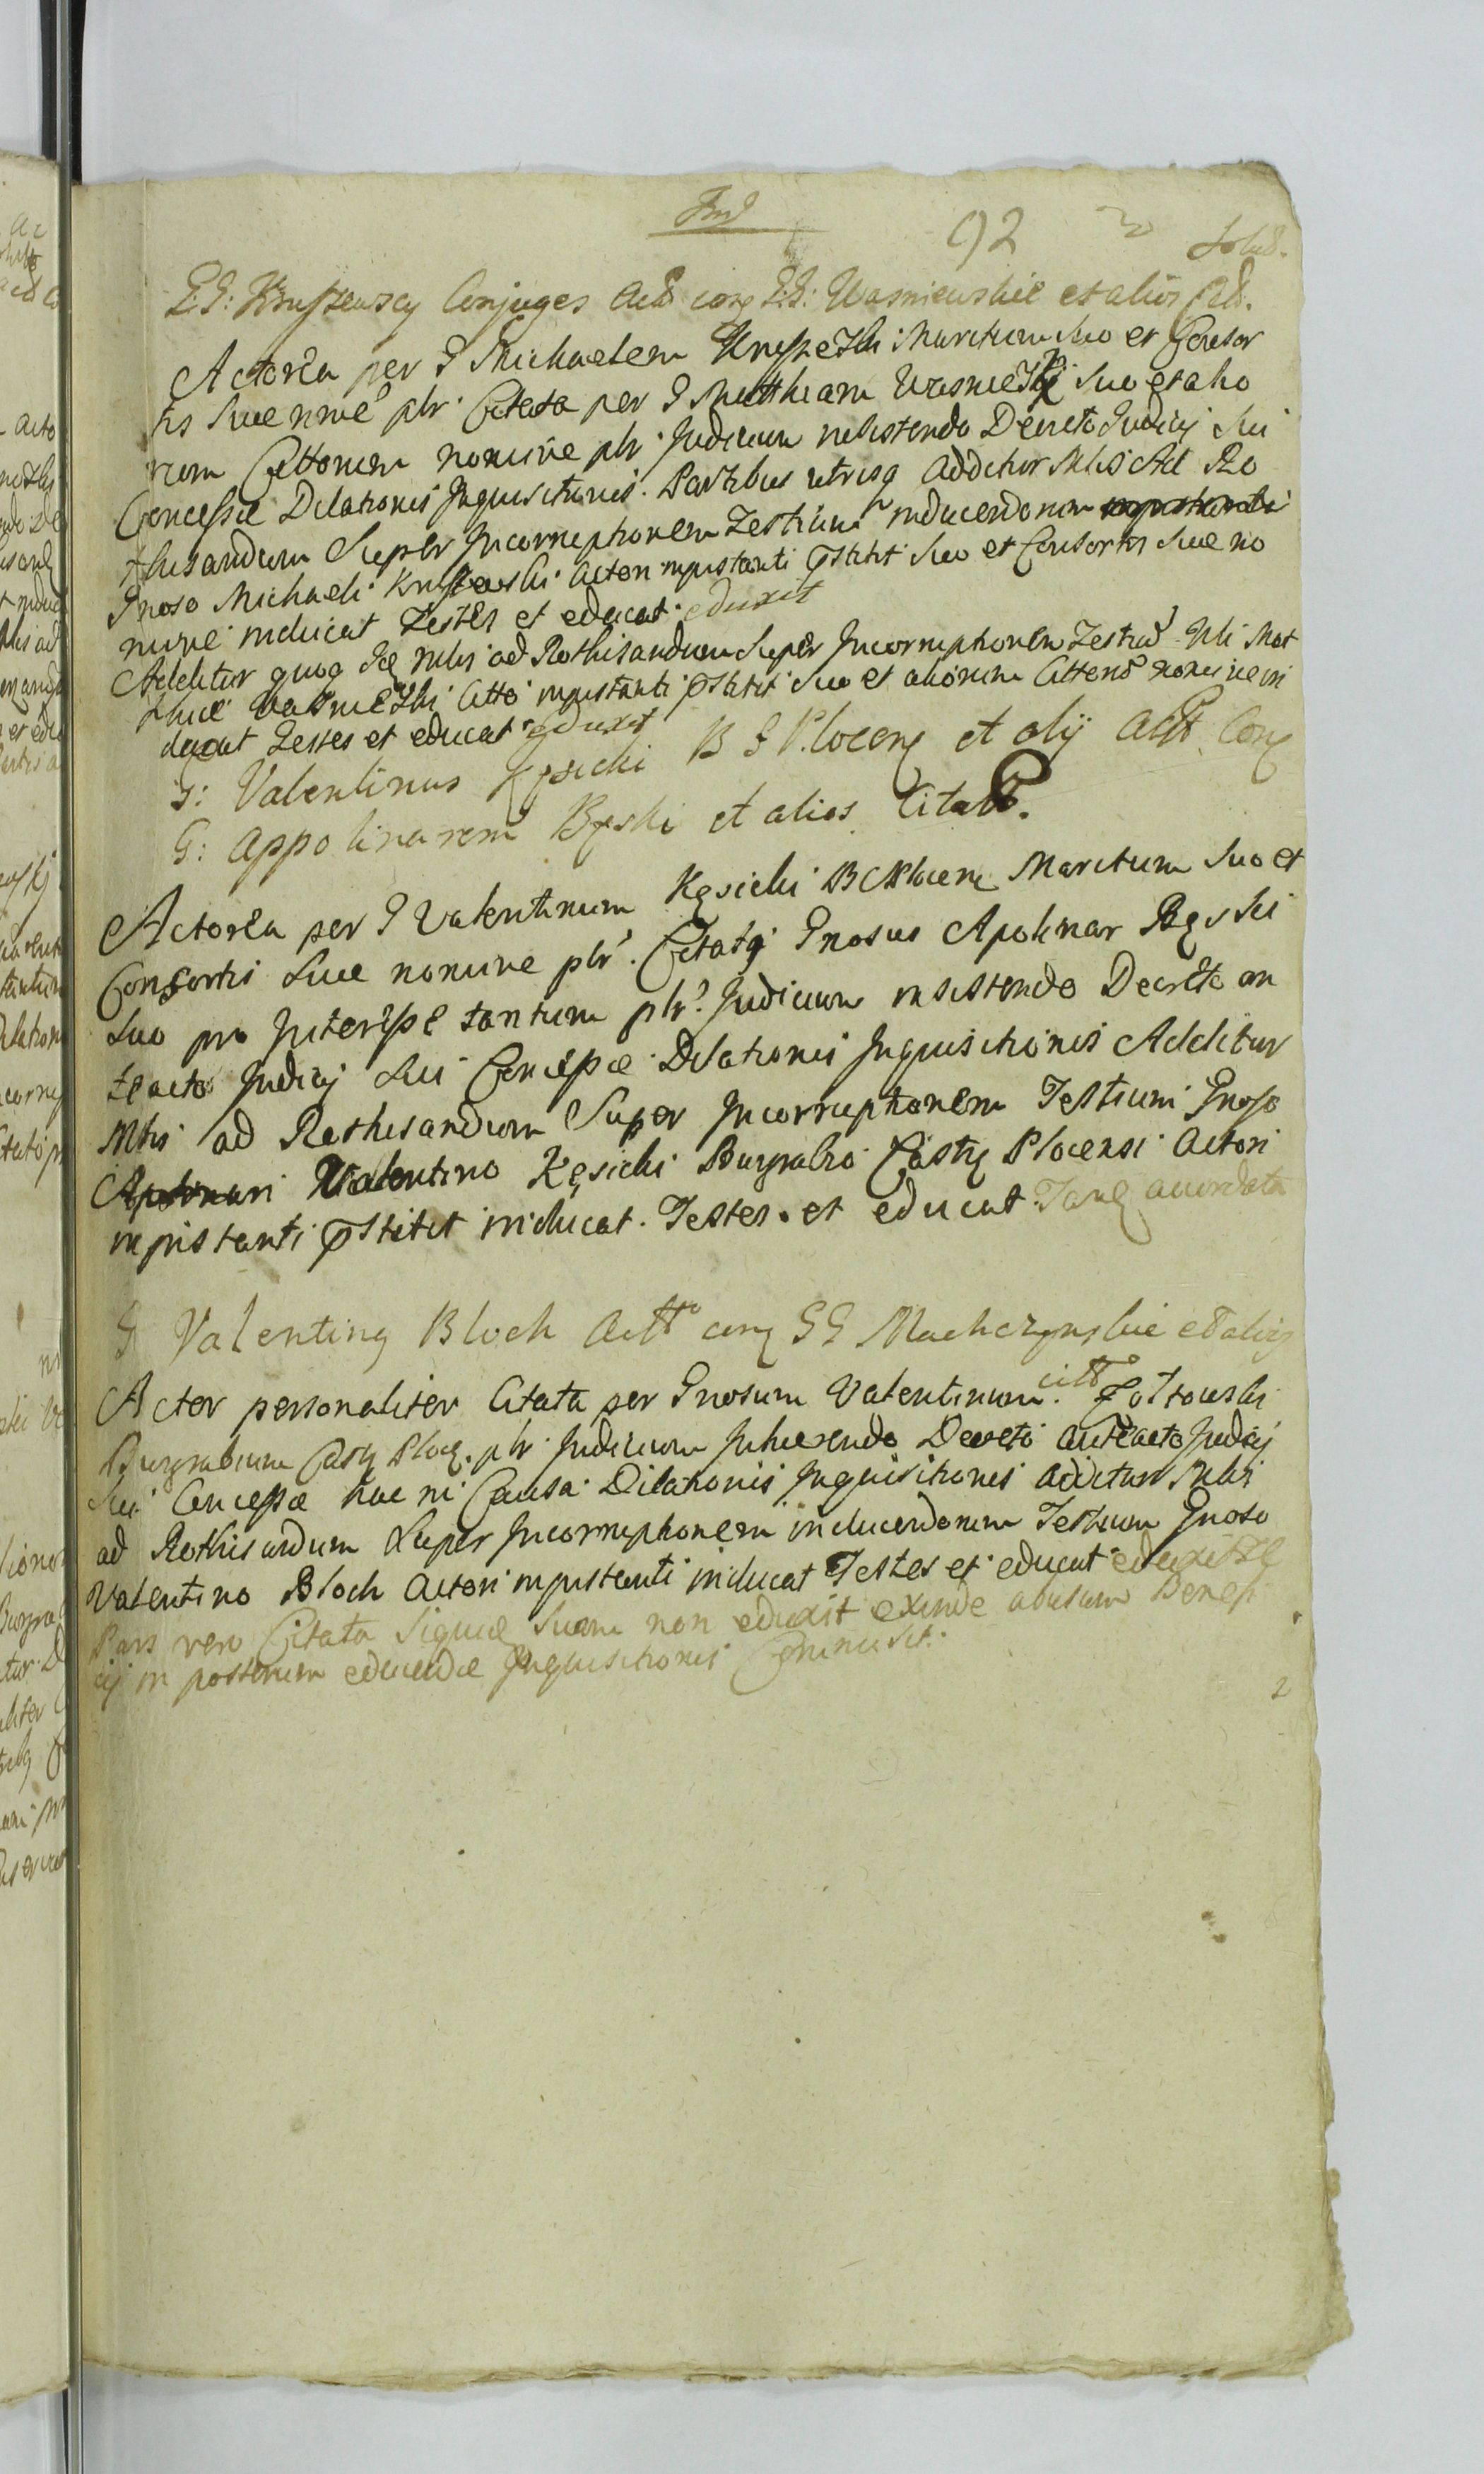 92
G: G: Kruszewscy Conjuges Act cong G: G: Wasniewskie et alios Citt.
Actorea per G Michaelem Kruszewski Maritum Suo et Consor
tis Suae nine plr. Citata per G Matthiam Wasniewski Suo et alio
rum Cittorum nomine plr. Judicium insistendo Decreto Judicij Sui
Concessae Dilationis Inquisitionis. Partibus utrisq additur Mlis Ad Ro
thisandum Super Incorruptionem Testium inducendorum
Gnoso Michaeli Kruszewski Actori inpstanti pstitit Suo et Consortis Suae no
mine inducat Testes et educat. eduxit
Additur quoq Mlis ad Rothisandum Super Incorruptionem Testium Gli Mat
thiae Wasniewski Citto inpstanti pstitit Suo et aliorum Cittorum nomine in
ducat Testes et educat. eduxit
G: Valentinus Kęsicki B G Plocens et alij Actt. Cong
G: Appolinarem Bęski et alios Citatt.
Actorea per G Valentinum Kęsicki B C Plocens Maritum Suo et
Consortis Suae nomine plr. Citatq Gnosus Apolinar Bęski
Suo pro Interesse tantum plr. Judicium insistendo Decreto an
teacto Judicij Sui Concessae Dilationis Inquisitionis Additur
Mlis ad Rothisandum Super Incorruptionem Testium Gnoso
Valentino Kęsicki Burgrabio Castrq Plocensi Actori
inpristanti pstitit inducat. Testes. et educat. Tanq acordata
G Valentinq Bloch Actt cong G G Machczynskie et alios
Actor personaliter Citata per Gnosum Valentinum citt Zołtowski
Burgrabium Castr Ploc. plr. Judicium Inhaerendo Decreto anteacto Judicij
Sui Concessae hac ni Causa Dilationis Inquisitionis additur Mlis
ad Rothisandum Super Incorruptionem inducendorum Testium Gnoso
Valentino Bloch Actori inpstanti inducat Testes et educat eduxitq
Pars vero Citata Siquae Suam non eduxit exinde abusum Benefi
cij in posterum educendae Inquisitionis Comisit.
2